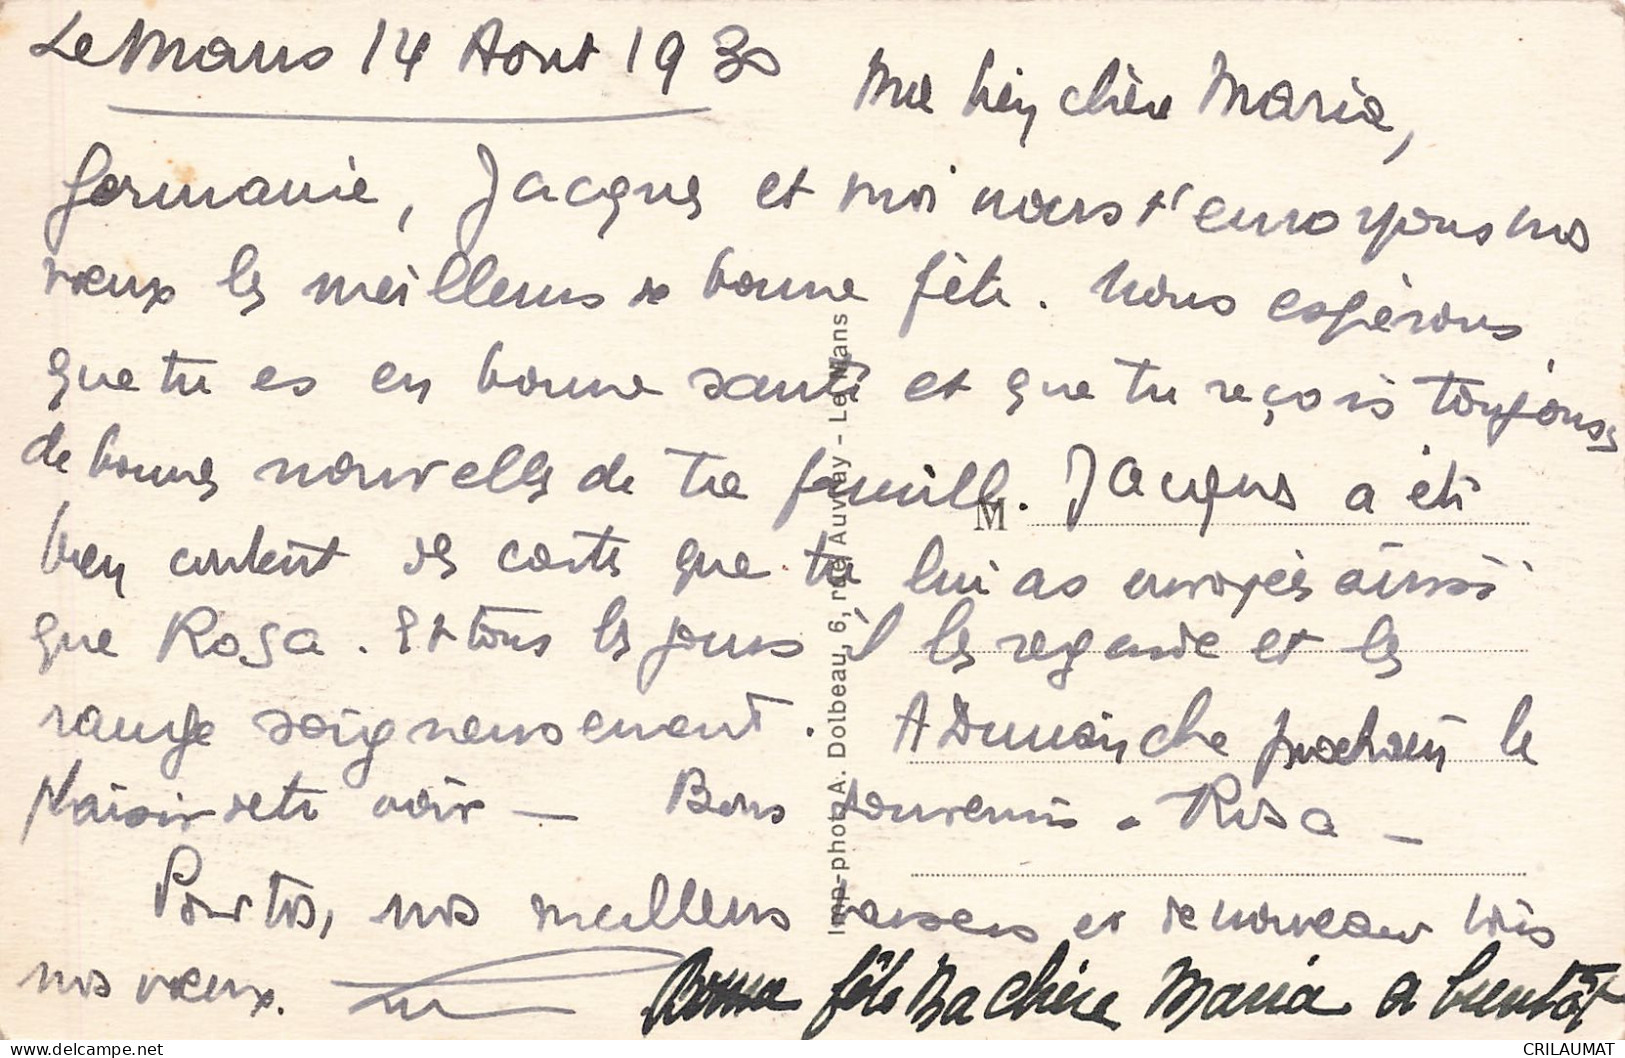 Le Mans 14 Aout 1930
Ma bien chère Maria,
Germanie, Jacques et moi nous t'envoyons nos
vœux les meilleurs de bonne fête. Nous espérons
que tu es en bonne santé et que tu reçois toujours
de bonnes nouvelles de ta famille. Jacques a été
bien content des cartes que tu lui as envoyées ainsi
que Rosa. Et tous les jours il les regarde et les
range soigneusement. A Dimanche prochain le
plaisir de te voir — Bons souvenirs - Rosa -
Pour toi, nos meilleurs baisers et de nouveau tous
nos vœux.
Bonne fête Ma chère Maria a bientôt
M
Imp-photo A. Dolbeau, 6, rue Auvray - Le Mans
CRILAUMAT